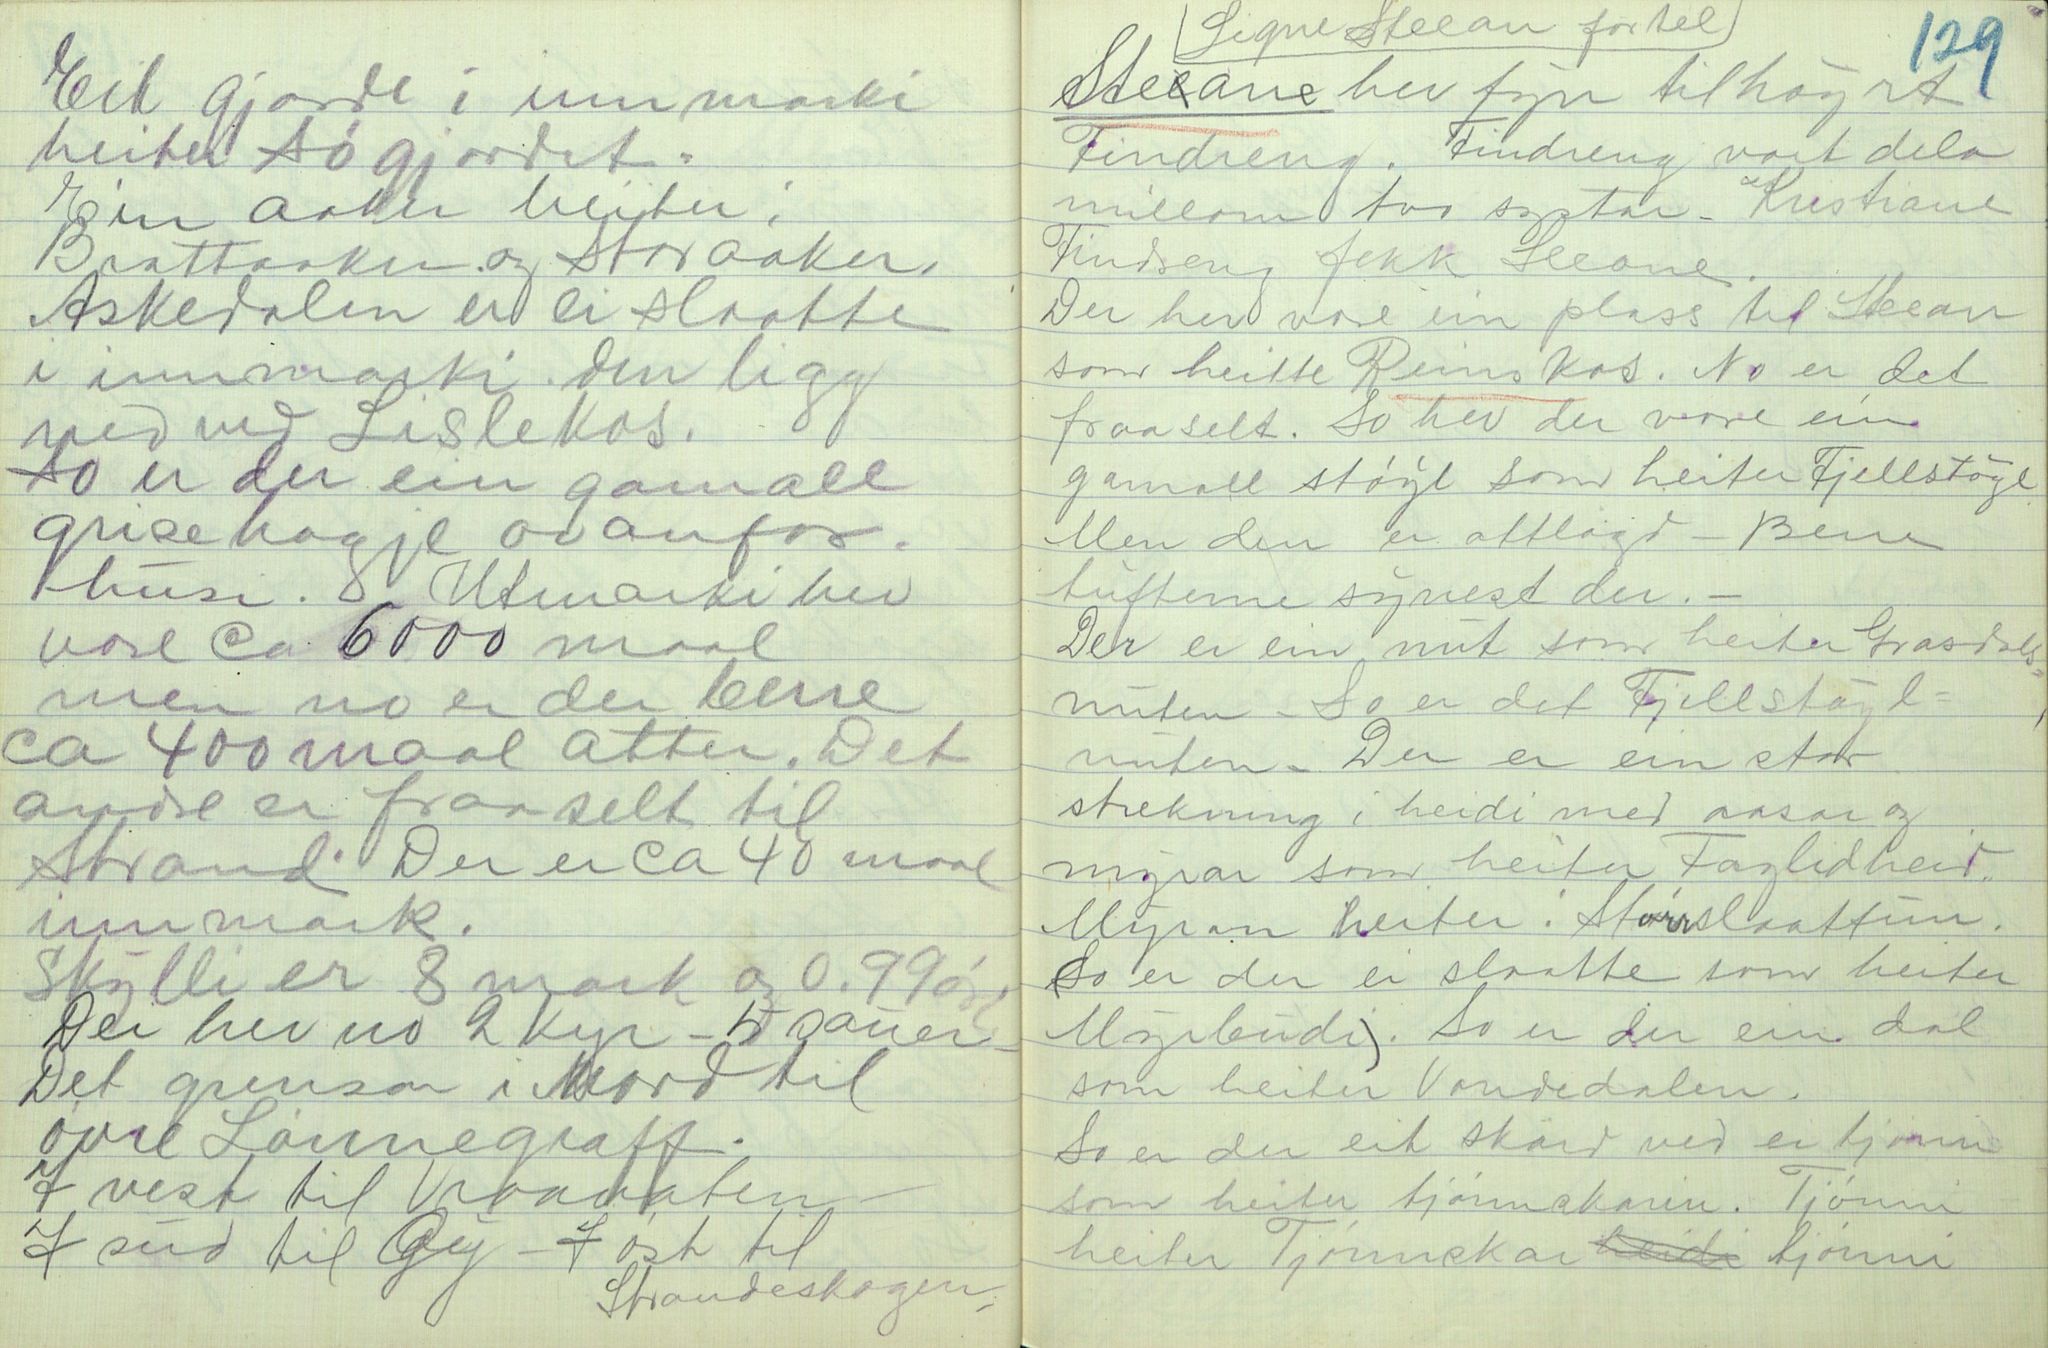 Eit gjorde i innmarki
heiter Søgjordet.
Ein aaker heiter:
Brattaaker og Storaaker.
Askedalen er ei slaatte
i innmarki. den ligg
ned ved Lislekos.
So er der ein gamall
grisehagje ovanfor
husi. Utmarki hev
vore ca 6000 maal
men no er der berre
ca 400 maal atter. Det
andre er fraaselt til
Strand. Der er ca 40 maal
innmark.
Skylli er 8 mark og 0.99 öre
Dei hev no 2 kyr - 5 sauer -
Det grensar i Nord til
övre Lönnegraff.
I vest til Vraavaten -
I süd til Gry - I öst til
Strandeskogen -
129
Signe Steean fortel
Steeane hev fyrr tilhöyrt
Findreng. Findreng vart dela
millom tvo systar - Kristiane
Findreng fekk Steeane.
Der hev vore ein plass til Steean
som heitte Reinskos. No er det
fraaselt. So hev der vore ein
gamall stöyl som heiter Fjellstöyl
Men den er attlagd - Berre
tufterne synest der. -
Der er ein nut som heiter Grasdals-
nuten - So er det Fjellstöyl=
nuten - Der er ein stor
strekning i heidi med aasar og
myrar som heiter Faglidheid.
Myran heiter: Störrslaattun.
So er der ei slaatte som heiter
Myrbudi). So er der ein dal
som heiter Vondedalen.
So er der eit skard ved ei tjönn
som heiter tjönnskarin. Tjönni
heiter Tjönnskar heidi tjönni